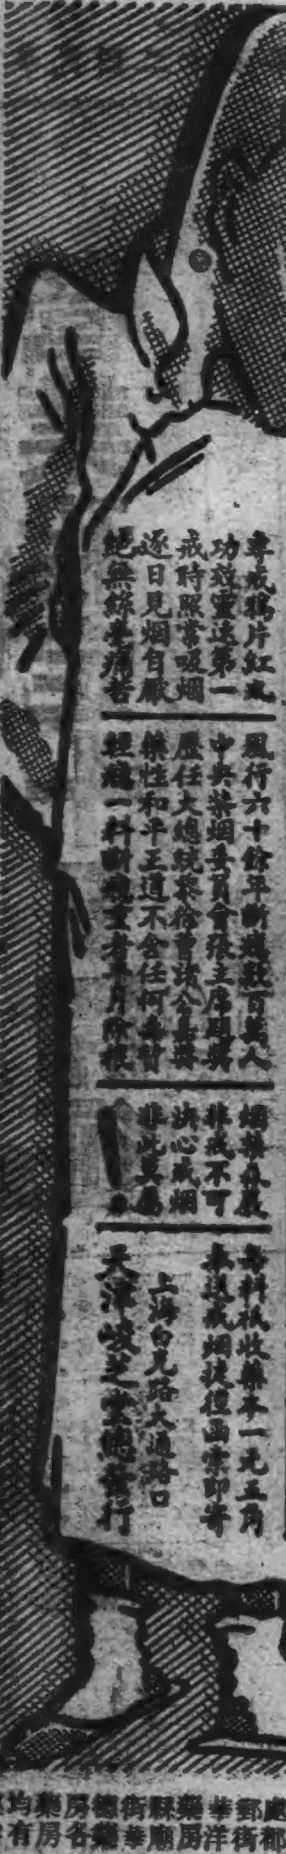 專戒鴉片紅丸
功效靈速第一
戒時照常吸烟
逐日見烟自厭
絕無絲毫痛苦
風行六十餘年斷癮數百萬人
中央禁烟委員會張主席題獎
歷任大總統黎徐曹諸公嘉獎
藥性和平王道不含任何毒質
輕癮一料斷癮重者半月除根
烟禁森嚴
非戒不可
決心戒烟
非此莫屬
每料祇收藥本一元五角
本送戒烟捷徑函索即寄
上海白克路大通路口
天津岐芝堂總發行